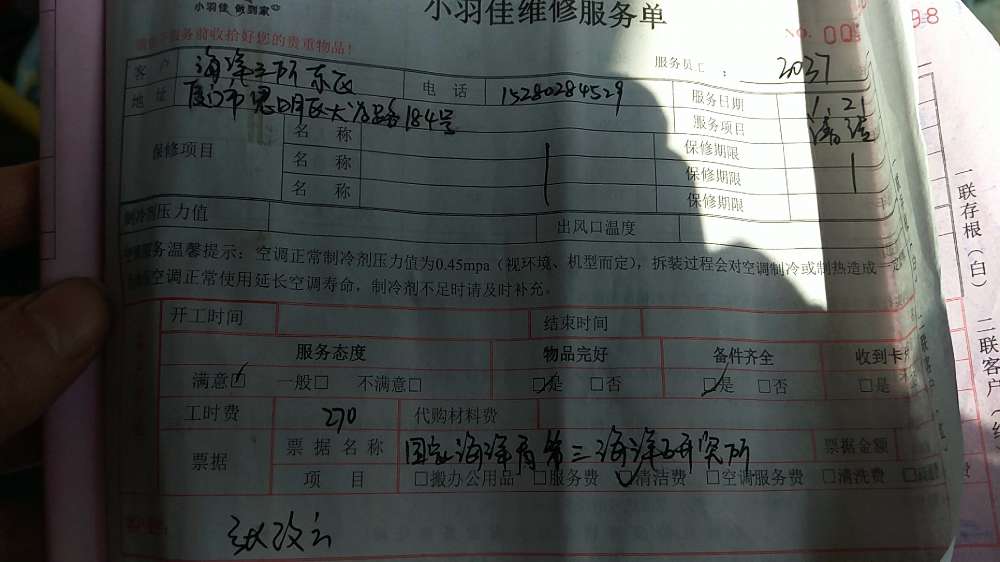 小羽佳 做到家
小羽佳维修服务单
务前收拾好您的贵重物品！
NO. 00
98
服务员工： 2037
客户 海洋三所东区 电话 15280284529 服务日期 1.21
地址 厦门市思明区大学路184号 服务项目 清洁
保修项目 名称 保修期限
名称 保修期限
名称 保修期限
制冷剂压力值 出风口温度
服务温馨提示：空调正常制冷剂压力值为0.45mpa（视环境、机型而定），拆装过程会对空调制冷或制热造成一
空调正常使用延长空调寿命，制冷剂不足时请及时补充。
开工时间 结束时间
服务态度 物品完好 备件齐全 收到卡
满意☑ 一般□ 不满意□ ☑是 □否 ☑是 □否 □是
工时费 270 代购材料费
票据 票据名称 国家海洋局第三海洋研究所 票据金额
项目 □搬办公用品 □服务费 ☑清洁费 □空调服务费 □清洗费
一联存根（白） 二联客户（